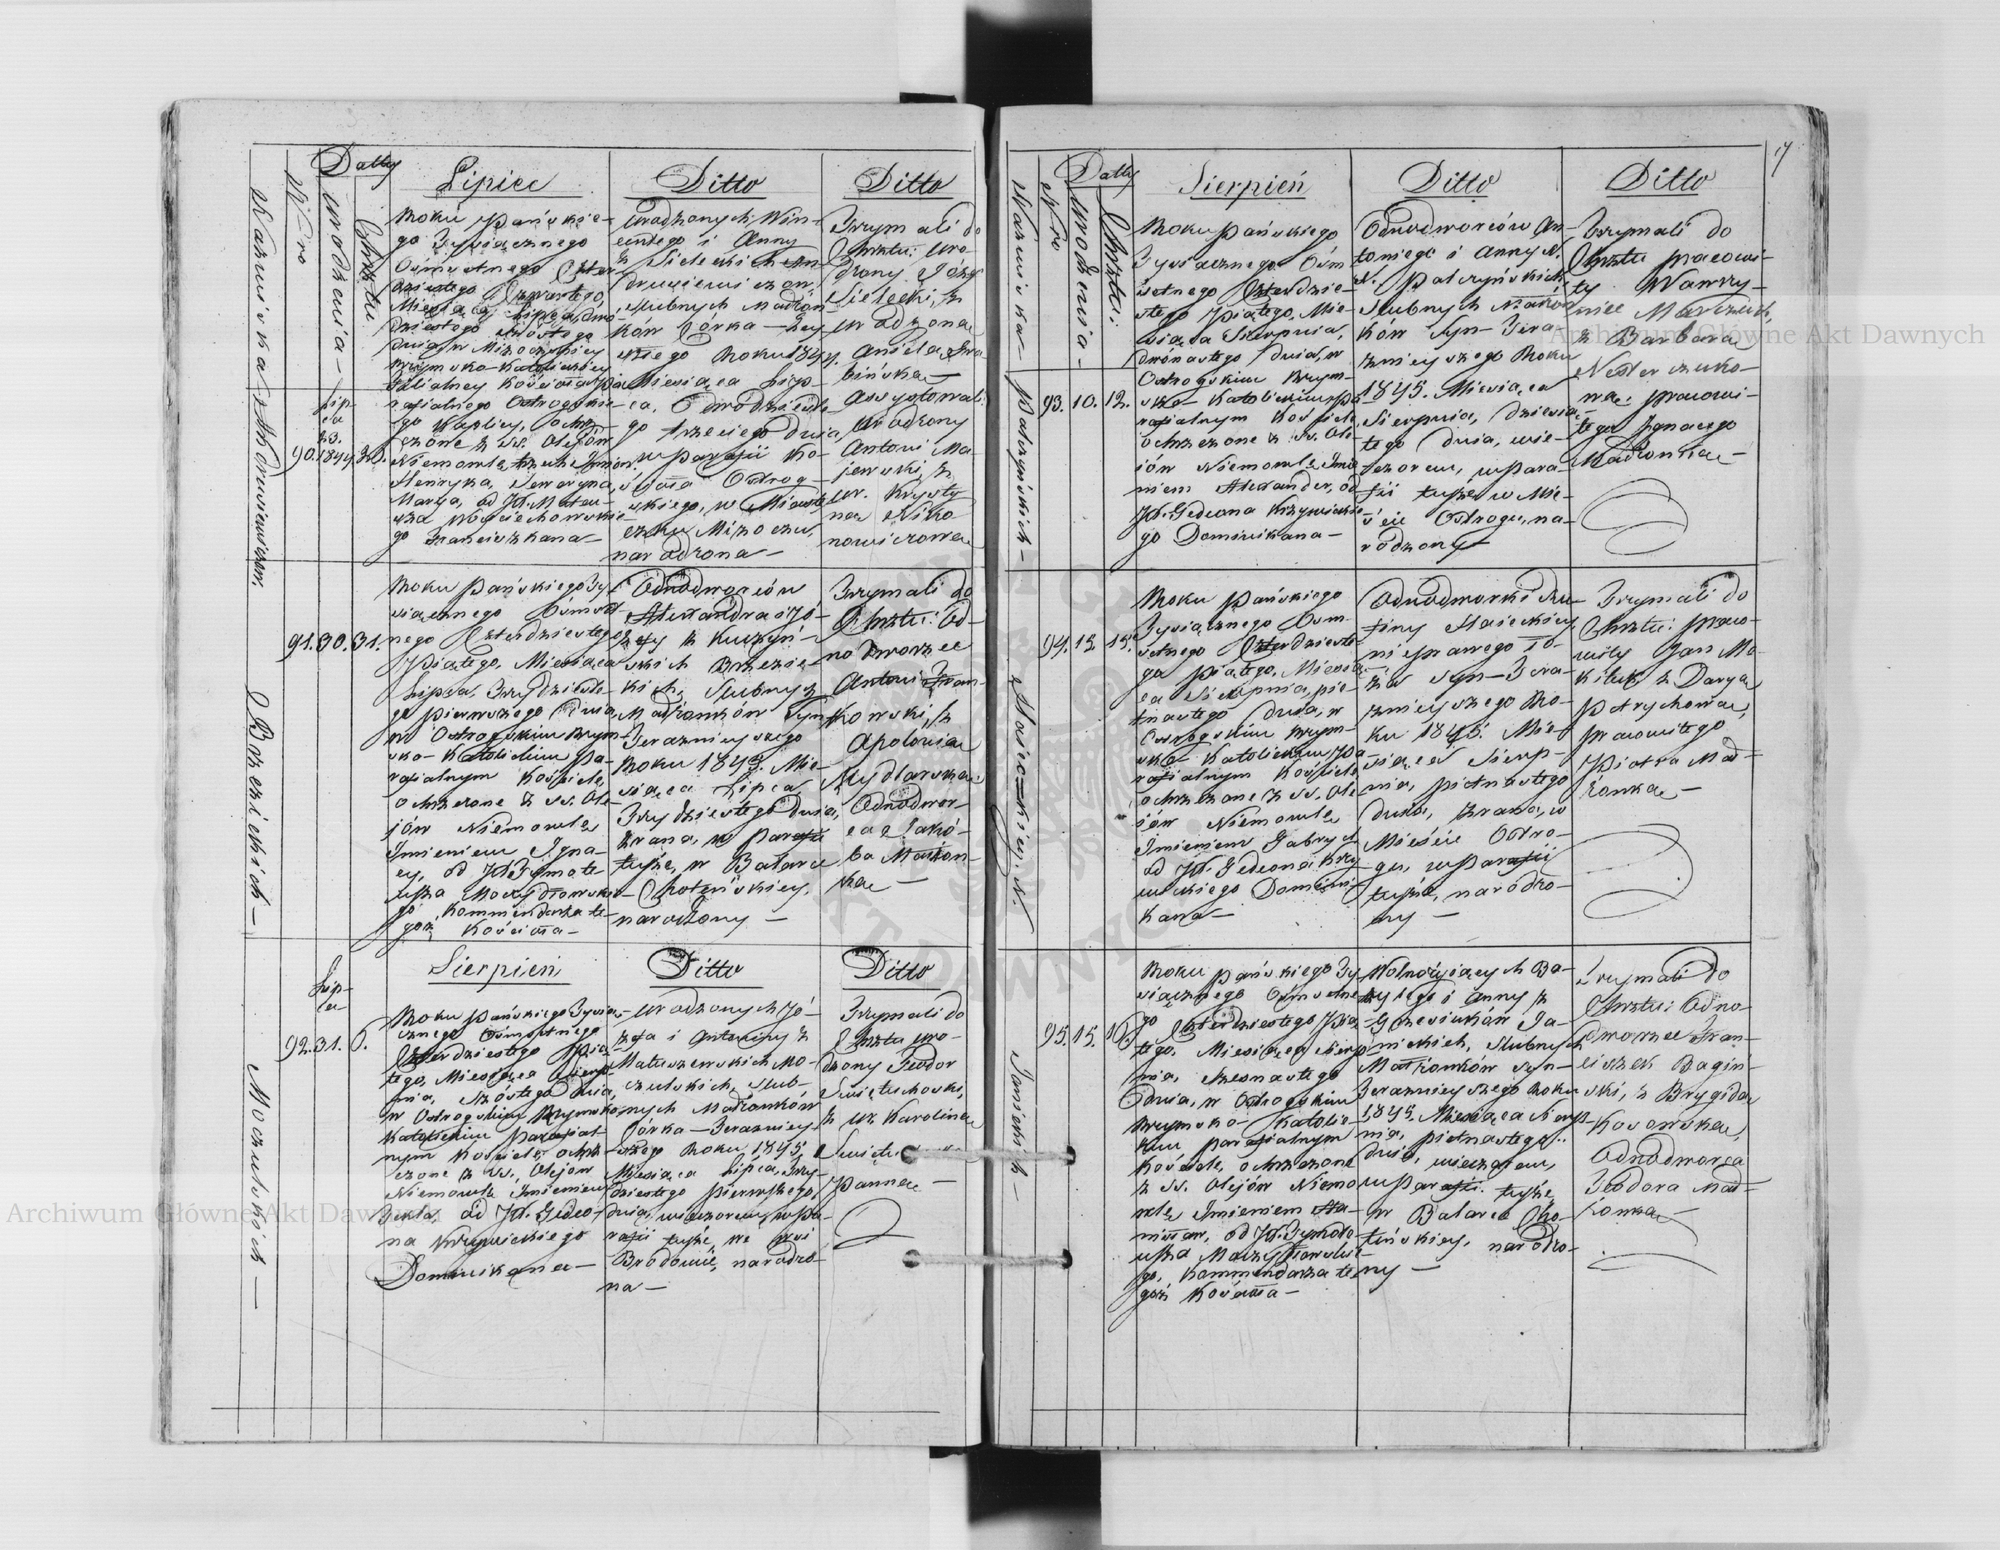 Datty
Nazwiska
Nro
Urodzenia
Chrztu
Lipiec
Ditto
Ditto
Andrusiewiczow.
Lip-
ca
23.
90. 1844.
Roku Pańskie-
go Tysiącznego
Ośmsetnego Czter-
dziestego Czwartego,
Miesiąca Lipca, dwu-
dziestego
dnia, w Mizockiey
Rzymsko-Katolickiey
Filialney Kościoła Pa-
rafialnego Ostrogskie-
go Kaplicy, ochrz-
czone z SS. Olejów
Niemowle, trzech Imion:
Henryka, Seweryna,
Marya, od JX. Mateu-
sza Woyciechowskie-
go Franciszkana—
Urodzonych: Win-
centego i Anny
z Sieleckich An-
drusiewiczow,
ślubnych Małżon-
kow Córka—
Roku 1844.
Miesiąca Lip-
ca, Dwódzieste-
go trzeciego dnia,
w Parafii Ko-
ścioła Ostrog-
skiego, w Miaste-
czku Mizoczu,
narodzona—
Trzymali do
Chrztu: Uro-
dzony Józef
Sielecki, z
Urodzoną
Anielą
Assystowali:
Urodzony
Antoni Ma-
jewski, z
Ur. Krysty-
ną Niko-
nowiczową
Brzezickich—
91. 30. 31.
Roku Pańskiego Ty-
siącznego Ośmset-
nego Czterdziestego
Piątego, Miesiąca
Lipca, Trzydzieste-
go pierwszego Dnia,
w Ostrogskim Rzym-
sko-Katolickim Pa-
rafialnym Kościele,
ochrzczone z SS. Ole-
jów Niemowle
Imieniem Igna-
cy, od JX. Tymote-
usza Moczydłowskie-
go Kommendarza te-
goż Kościoła—
Odnodworców
Alexandra i Jó-
zefy z Kuczyń-
skich Brzezic-
kich, Ślubnych
Małżonków Syn
Terazniejszego
Roku 1845. Mie-
siąca Lipca
Trzydziestego dnia,
zrana, w Parafii
tuyże, w Batarei
Choteńskiey,
narodzony—
Trzymali do
Chrztu: Od-
nodworzec
Antoni Fran-
kowski, z
Apolonią
Mydlarską
Odnodwor-
ca Jakó-
ba Małżon-
ką—
Sierpień
Ditto
Ditto
Moczulskich—
Lip-
ca
92. 31. 6.
Roku Pańskiego Tysią-
cznego Ośmsetnego
Czterdziestego Pią-
tego, Miesiąca Sierp-
nia, szóstego Dnia,
w Ostrogskim Rzymsko-
Katolickim Parafial-
nym Kościele, ochrz-
czone z SS. Olejów
Niemowle Imieniem
Tekla, od JX. Gedeo-
na Krzywickiego
Dominikana—
Urodzonych Jó-
zefa i Antoniny z
Matuszewskich Mo-
czulskich, Ślub-
nych Małżonków
Córka—Terazniey-
szego Roku 1845.
Miesiąca Lipca, Trzy-
dziestego pierwszego,
dnia, wieczorem, w Pa-
rafii tuyże, we wsi
Brodowie, narodzo-
na—
Trzymali do
Chrztu Uro-
dzony Teodor
Święcchowski,
z Ur. Karoliną
Panną—
7
Datty
Nazwiska
Nro
Urodzenia
Chrztu:
Sierpień
Ditto
Ditto
Patrzyńskich—
93. 10. 12.
Roku Pańskiego
Tysiącznego Óśm-
setnego Czterdzie-
stego Piątego, Mie-
siąca Sierpnia,
dwónastego Dnia, w
Ostrogskim Rzym-
sko-Katolickim Pa-
rafialnym Kościele,
ochrzczone z SS. Ole-
jów Niemowle Imie-
niem Alexander, od
JX. Gedeona Krzywickie-
go Dominikana—
Odnodworców An-
toniego i Anny N.
N. Patrzyńskich,
Ślubnych Małżon-
ków Syn—Tera-
zniejszego Roku
1845. Miesiąca
Sierpnia, dziesią-
tego Dnia, wie-
czorem, w Para-
fii tuyże, w Mie-
ście Ostrogu, na-
rodzony—
Trzymali do
Chrztu pracowi-
ty Wawrzy-
niec
z Barbarą
Nesterczuko-
wą: pracowi-
tego Ignacego
Małżonką—
Stasieckiey. N.
94. 15. 15.
Roku Pańskiego
Tysiącznego Óśm-
setnego Czterdzieste-
go Piątego, Miesią-
ca Sierpnia, pię-
tnastego Dnia, w
Ostrogskim Rzym-
sko-Katolickim Pa-
rafialnym Kościele
ochrzczone z SS. Ole-
jów Niemowle
Imieniem Gabryel
od JX. Gedeona Krzy-
wickiego Domini-
kana—
Odnodworki Ru-
finy Stasieckiey
nieprawego ło-
ża Syn—Tera-
zniejszego Ro-
ku 1845. Mie-
siąca Sierp-
nia, piętnastego
dnia, zrana, w
Mieście Ostro-
gu, w Parafii
tuyże, narodzo-
ny—
Trzymali do
Chrztu: praco-
wity Jan Mo-
kiluk z Daryą
Petrychową,
pracowitego
Piotra Mał-
żonką—
Janickich—
95. 15. 16.
Roku Pańskiego Ty-
siącznego Ośmsetne-
go Czterdziestego Pią-
tego, Miesiąca Sierp-
nia, szesnastego
Dnia, w Ostrogskim
Rzymsko-Katolic-
kim Parafialnym
Kościele, ochrzczone
z SS. Olejów Niemo-
wle Imieniem
od JX. Tymote-
usza Moczydłowskie-
go, Kommendarza te-
goż Kościoła—
Wolnożyjących Ba-
zylego i Anny z
Ja-
nickich, Ślubnych
Małżonków Syn—
Terazniejszego Roku
1845. Miesiąca Sierp-
nia, piętnastego
dnia, wieczorem,
w Parafii tuyże
w Batarei Cho-
teńskiey, narodzo-
ny—
Trzymali do
Chrztu: Odno-
dworzec Fran-
ciszek Bagiń-
ski, z Brygidą
Kosowską,
Odnodworca
Teodora Mał-
żonką—
Archiwum Główne Akt Dawnych
Archiwum Główne Akt Dawnych